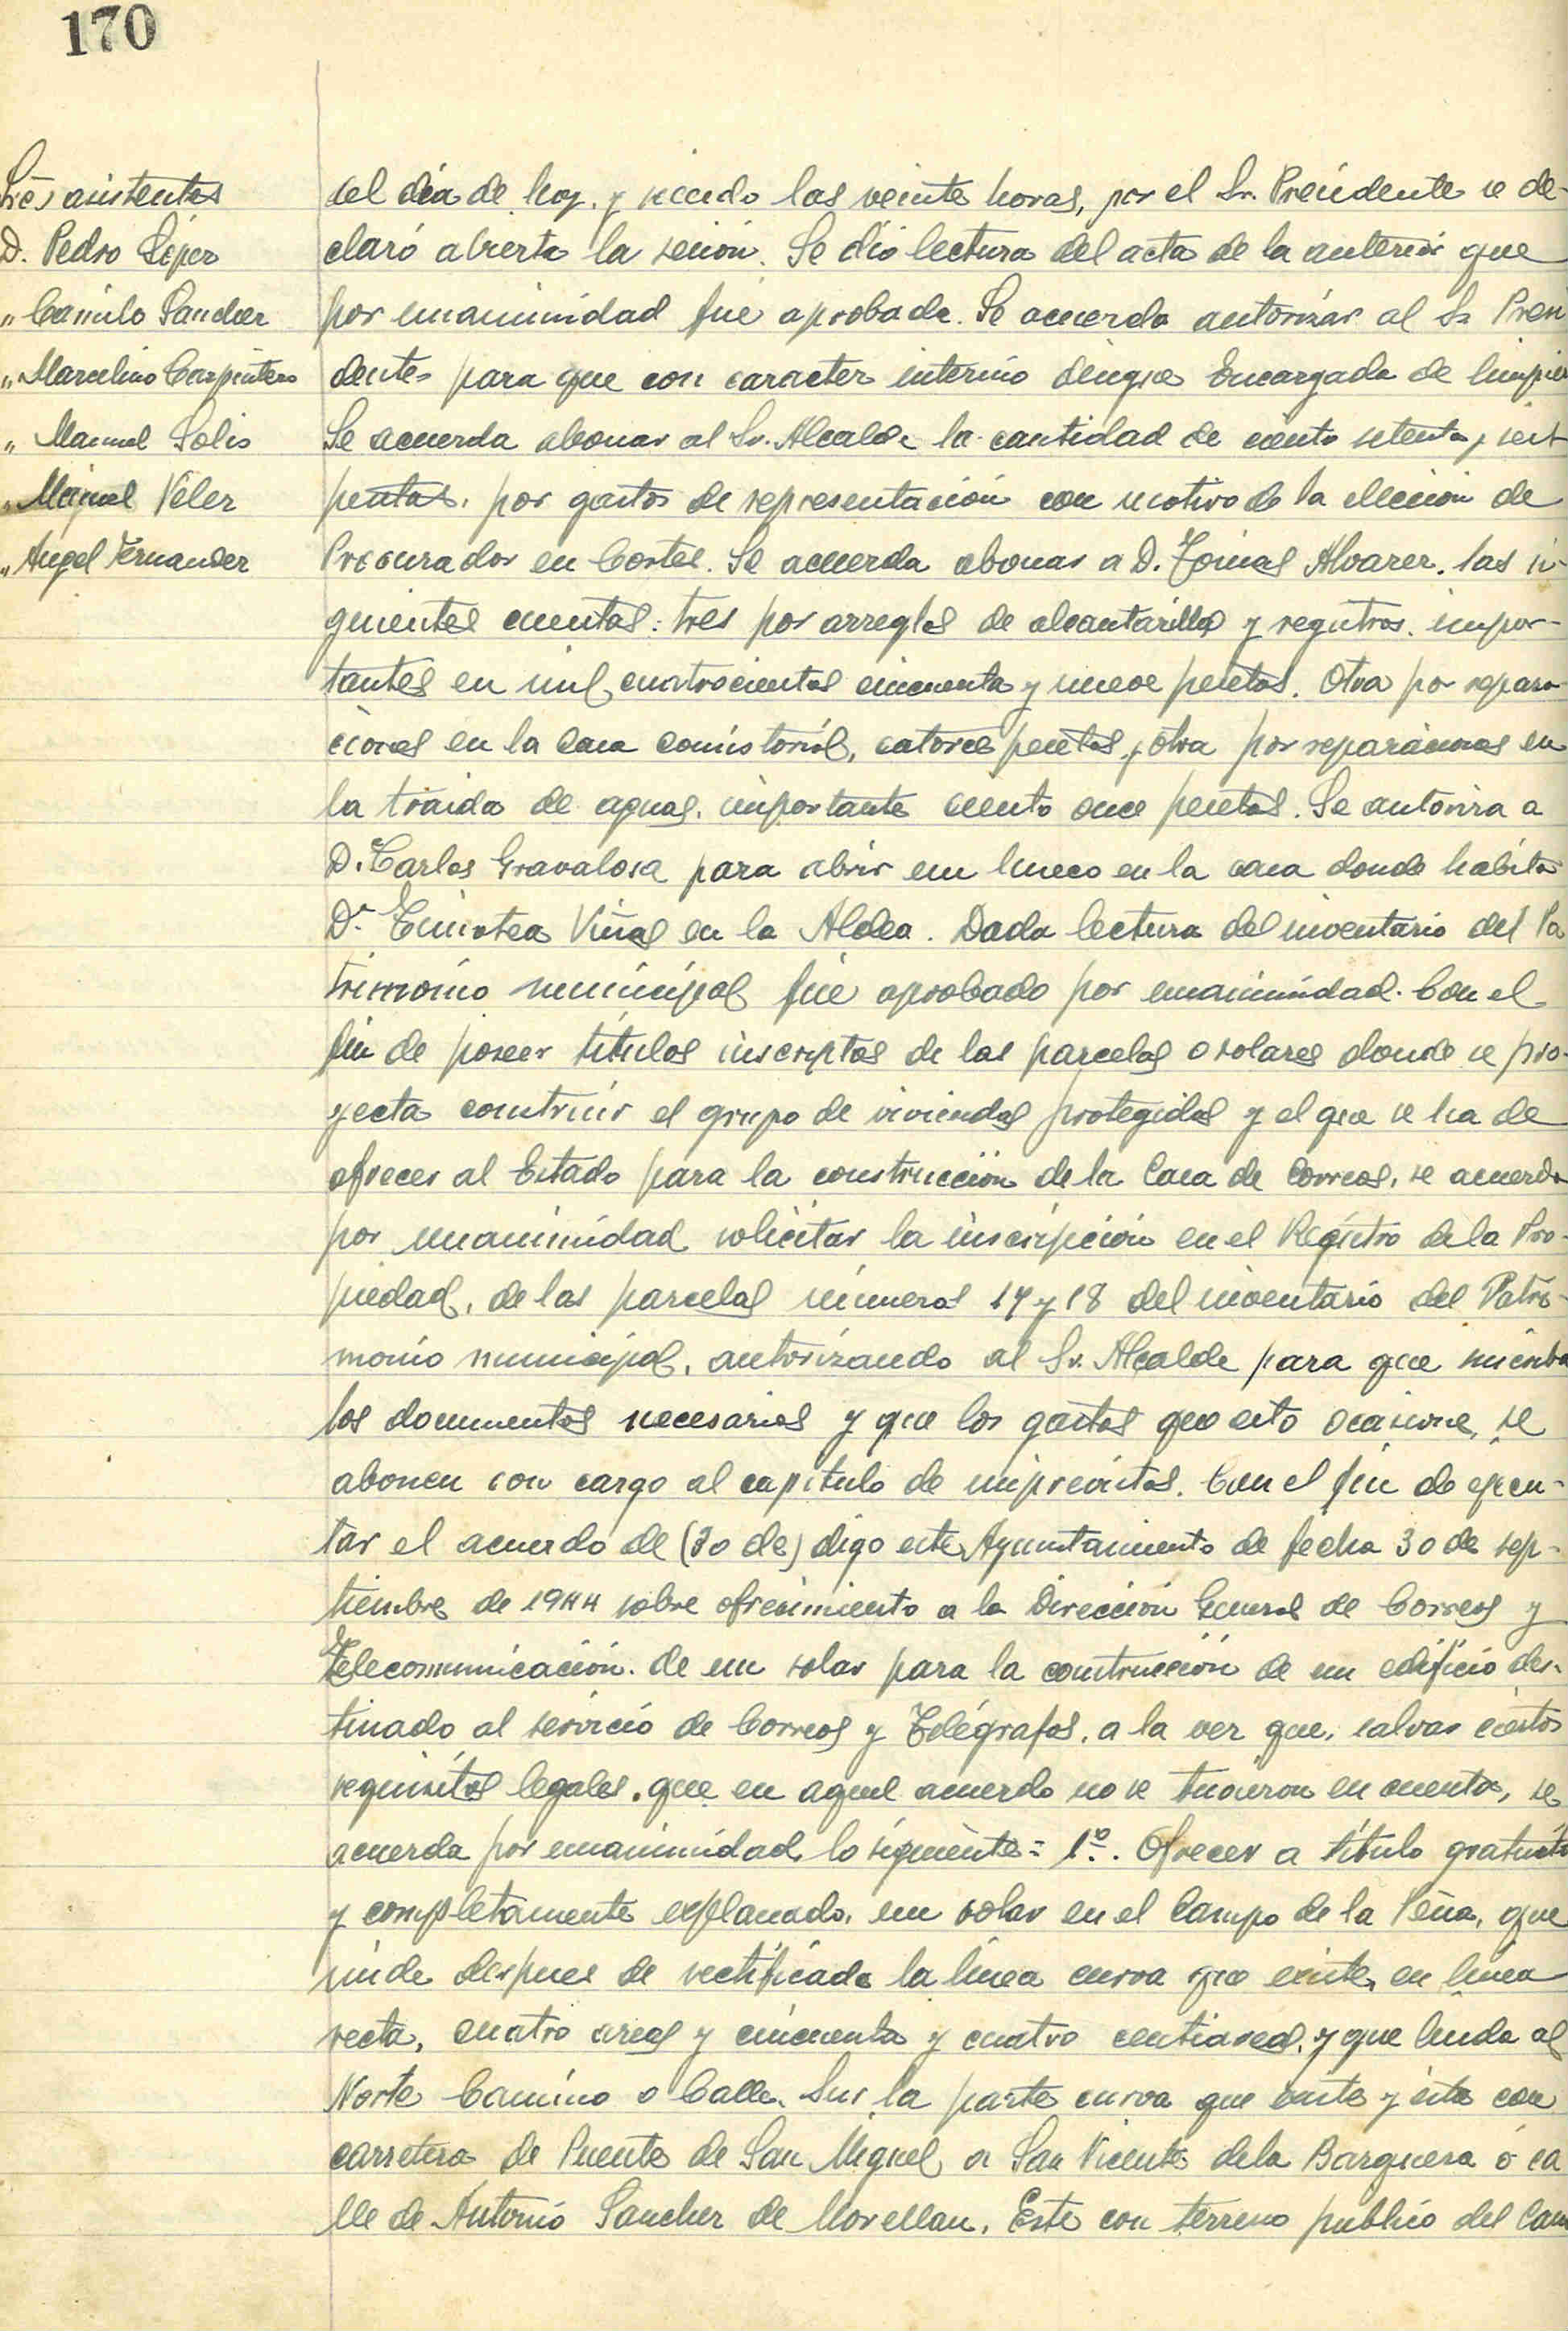 170
Sres asistentes
D. Pedro López
" Camilo Sanchez
" Marcelino Carpintero
" Manuel Solis
" Miguel Velez
" Angel Fernandez
del día de hoy, y siendo las veinte horas, por el Sr. Presidente se de-
claró abierta la sesión. Se dio lectura del acta de la anterior que
por unanimidad fué aprobada. Se acuerda autorizar al Sr Presi
dente para que con caracter interino designe Encargada de limpiez
Se acuerda abonar al Sr. Alcalde la cantidad de ciento setenta y seis
pesetas, por gastos de representación con motivo de la elección de
Procurador en Cortes. Se acuerda abonar a D. Tomas Alvarez, las si-
guientes cuentas: tres por arreglos de alcantarillas y registros, impor-
tantes en mil cuatrocientas cincuenta y nueve pesetas. Otra por repara-
ciones en la casa consistorial, catorce pesetas, y otra por reparaciones en
la traida de aguas, importante ciento once pesetas. Se autoriza a
D. Carlos Gravalosa para abrir un hueco en la casa donde habita
Dª Timotea Viñas en la Aldea. Dada lectura del inventario del Pa
trimonio municipal fué aprobado por unanimidad. Con el
fin de poseer títulos inscriptos de las parcelas o solares donde se pro-
yecta construir el grupo de viviendas protegidas y el que se ha de
ofrecer al Estado para la construcción de la Casa de Correos, se acuerda
por unanimidad solicitar la inscripción en el Registro de la Pro-
piedad, de las parcelas números 17 y 18 del inventario del Patri-
monio municipal, autorizando al Sr. Alcalde para que suscriba
los documentos necesarios y que los gastos que esto ocasione, se
abonen con cargo al capitulo de imprevistos. Con el fin de ejecu-
tar el acuerdo de (30 de) digo este Ayuntamiento de fecha 30 de sep-
tiembre de 1944 sobre ofrecimiento a la Dirección General de Correos y
Telecomunicación, de un solar para la construcción de un edificio des-
tinado al servicio de Correos y Telégrafos, a la vez que, salvar ciertos
requisitos legales, que en aquel acuerdo no se tuvieron en cuenta, se
acuerda por unanimidad lo siguiente = 1º. Ofrecer a título gratuito
y completamente explanado, un solar en el Campo de la Peña, que
mide despues de rectificada la línea curva que existe, en línea
recta, cuatro areas y cincuenta y cuatro centiareas, y que linda al
Norte Camino o Calle, Sur la parte curva que existe y ésta con
carretera de Puente de San Miguel a San Vicente dela Barquera ó ca
lle de Antonio Sanchez de Movellan, Este con terreno publico del Cam